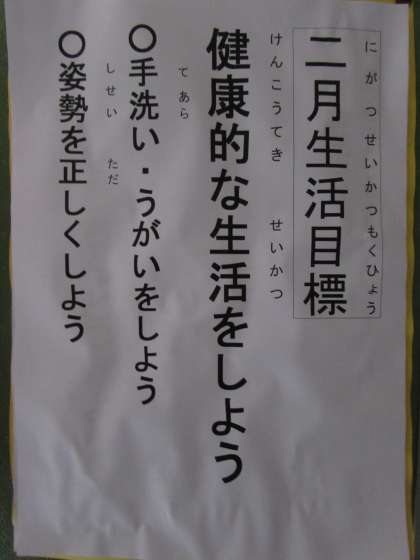 にがつせいかつもくひょう
二月生活目標
けんこうてき せいかつ
健康的な生活をしよう
てあら
〇手洗い・うがいをしよう
しせい ただ
〇姿勢を正しくしよう